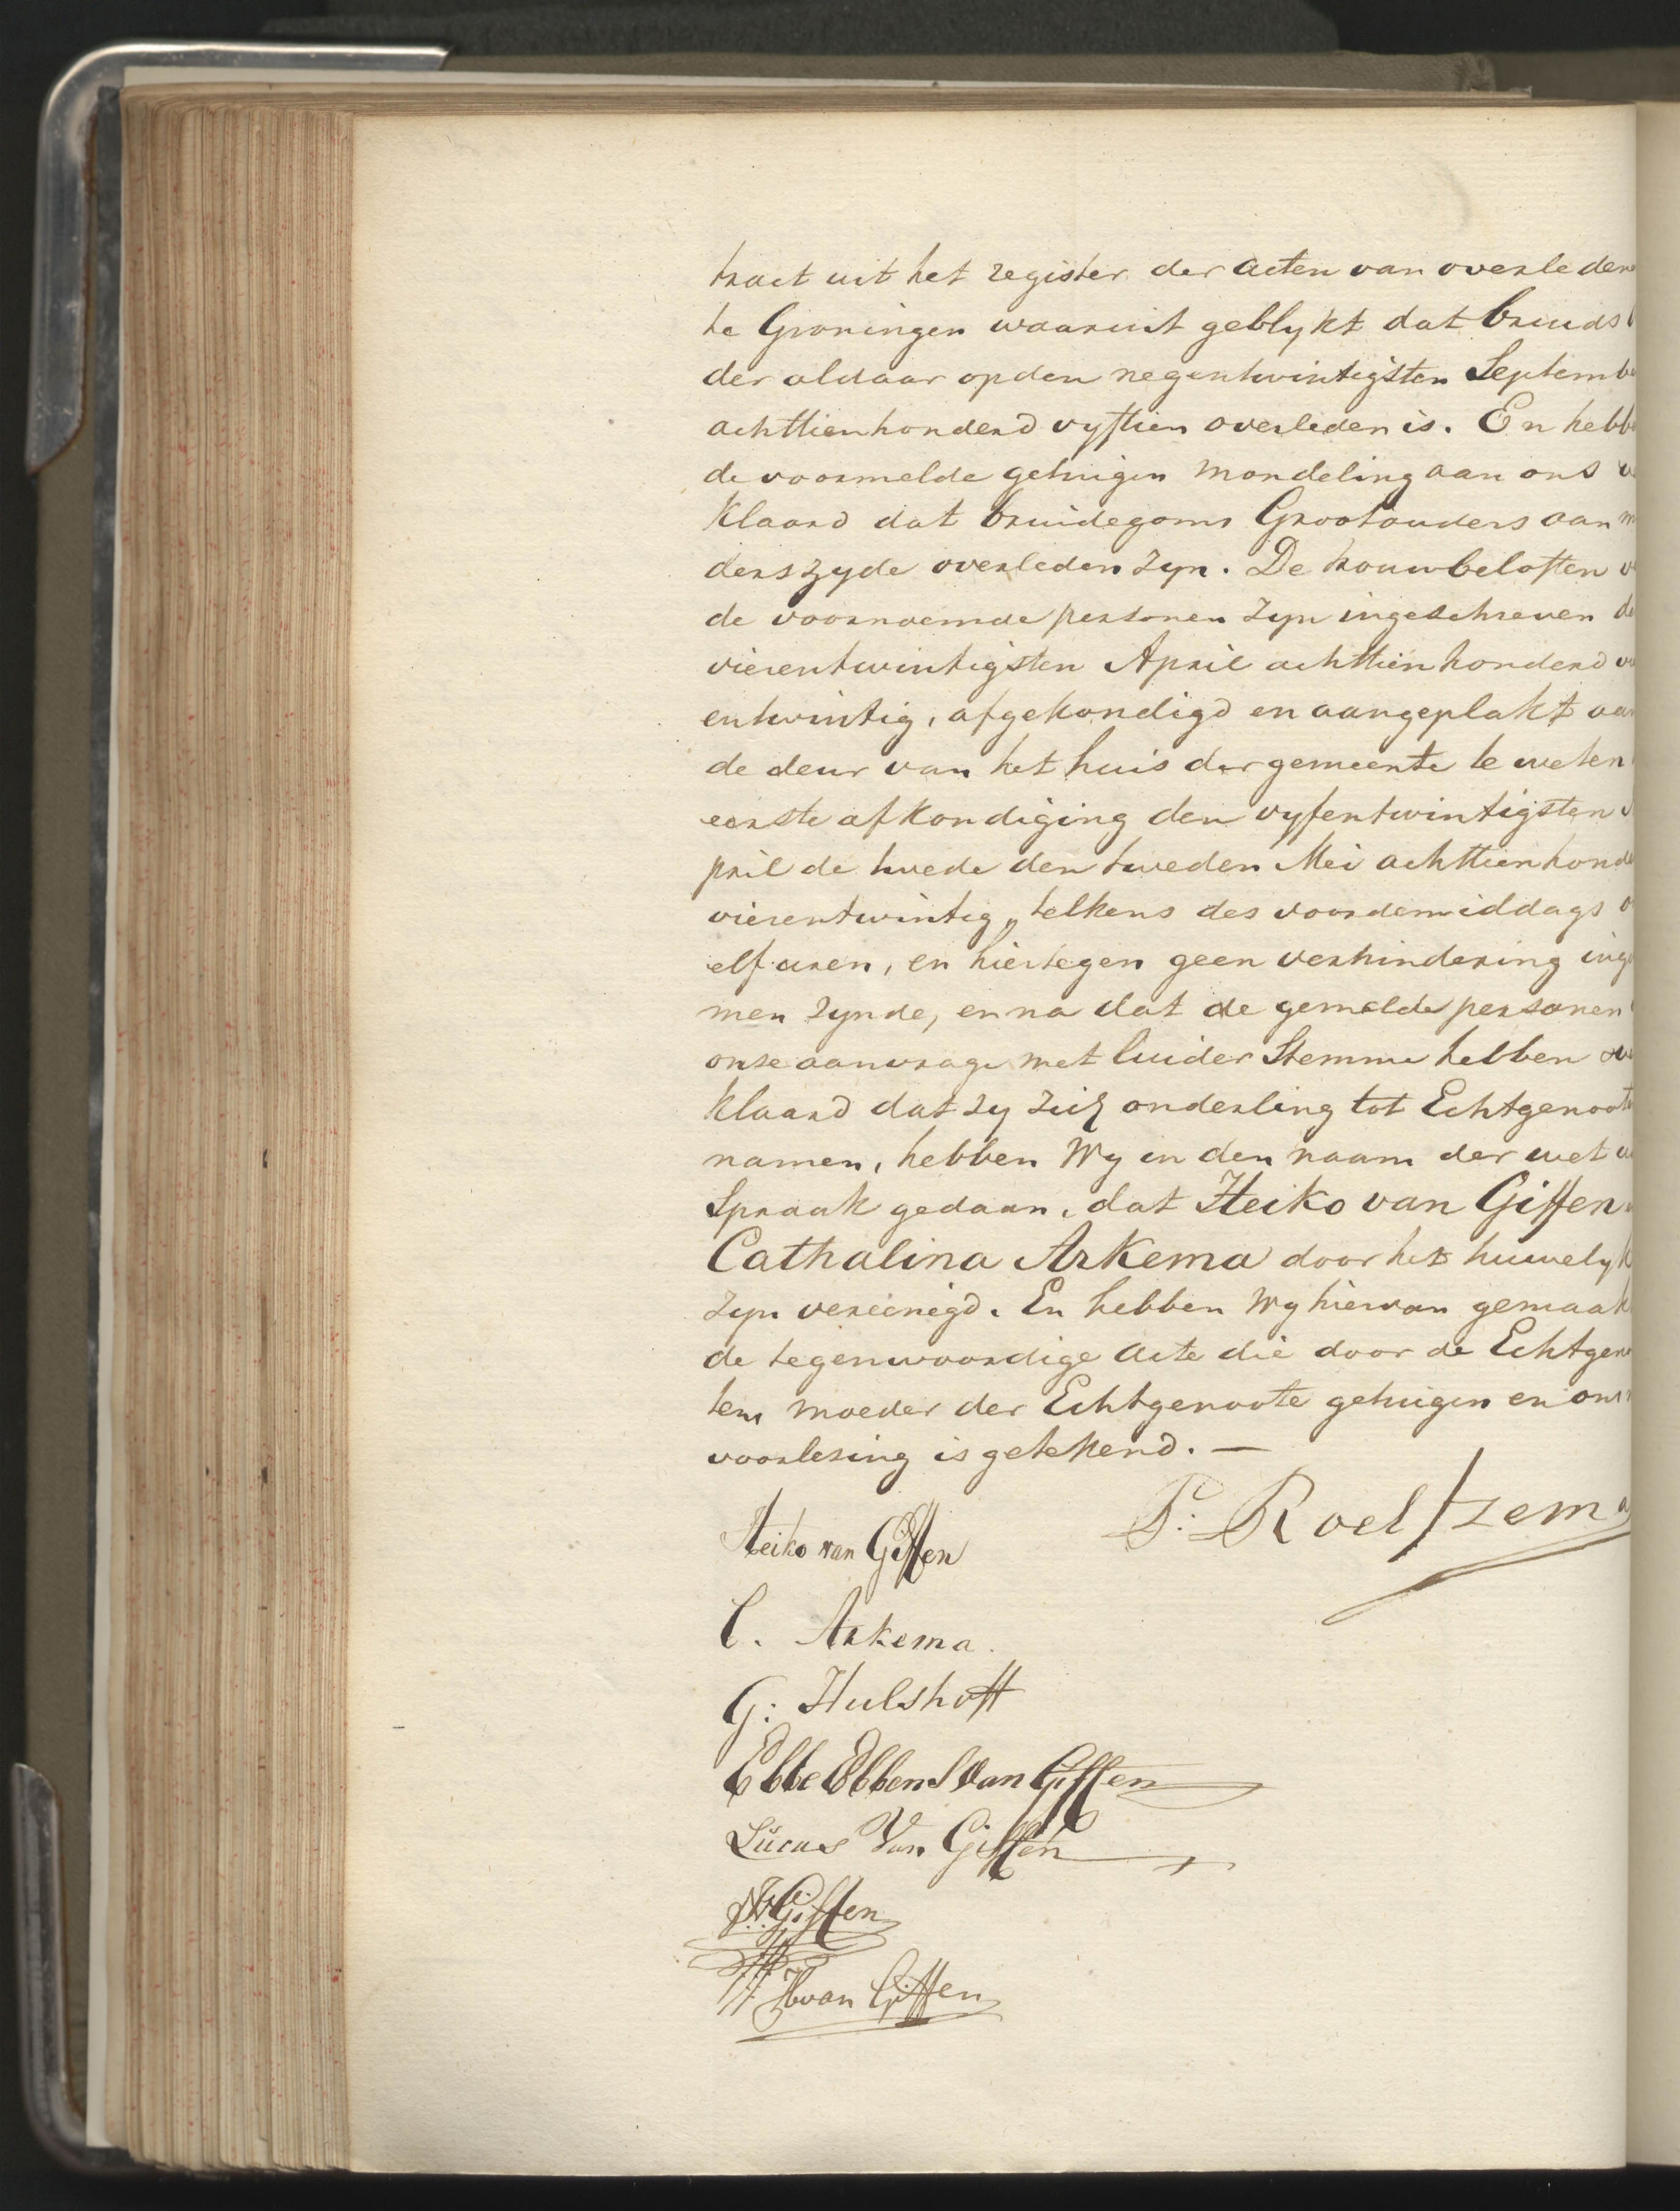 tract uit het register der acten van overledene
te Groningen waaruit geblykt dat bruids
der aldaar op den negentwintigsten Septembe
achttienhonderd vyftien overleden is. En hebbe
de voormelde getuigen mondeling aan ons
klaard dat bruidegoms Grootouders aan
derszyde overleden zyn. De trouwbeloften
de voornoemde personen zyn ingeschreven de
vierentwintigsten April achttienhonderd
entwintig, afgekondigd en aangeplakt aan
de deur van het huis der gemeente te weten
eerste afkondiging den vyfentwintigsten A
pril de twede den tweden Mei achttienhonde
vierentwintig, telkens des voordemiddags
elf uren, en hiertegen geen verhindering inge
men zynde, en na dat de gemelde personen
onse aanvrage met luider Stemme hebben ver
klaard dat zy zich onderling tot Echtgenoote
namen, hebben Wy in den naam der wet
Spraak gedaan, dat Heiko van Giffen
Cathalina Arkema door het huwelyk
zyn vereenigd. En hebben Wy hiervan gemaak
de tegenwoordige acte die door de Echtgeno
ten, moeder der Echtgenoote getuigen en ons
voorlezing is getekend. —
Heiko van Giffen P: Roeltzema
C. Arkema.
G: Hulshoff
Ebbe Ebbens Van Giffen
Lucas Van Giffen
Giffen
H van Giffen